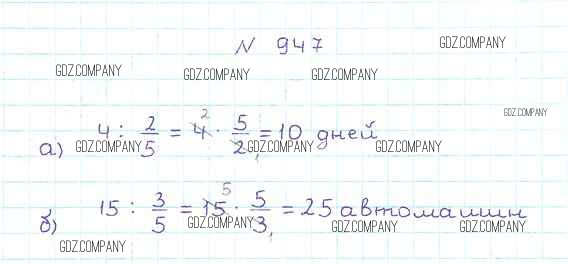 N 947
GDZ.COMPANY
GDZ.COMPANY GDZ.COMPANY GDZ.COMPANY
GDZ.COMPANY
а) 4 : 2/5 = 4 2 · 5/2 1 = 10 дней
GDZ.COMPANY GDZ.COMPANY GDZ.COMPANY
б) 15 : 3/5 = 15 5 · 5/3 1 = 25 автомашин
GDZ.COMPANY GDZ.COMPANY GDZ.COMPANY
GDZ.COMPANY